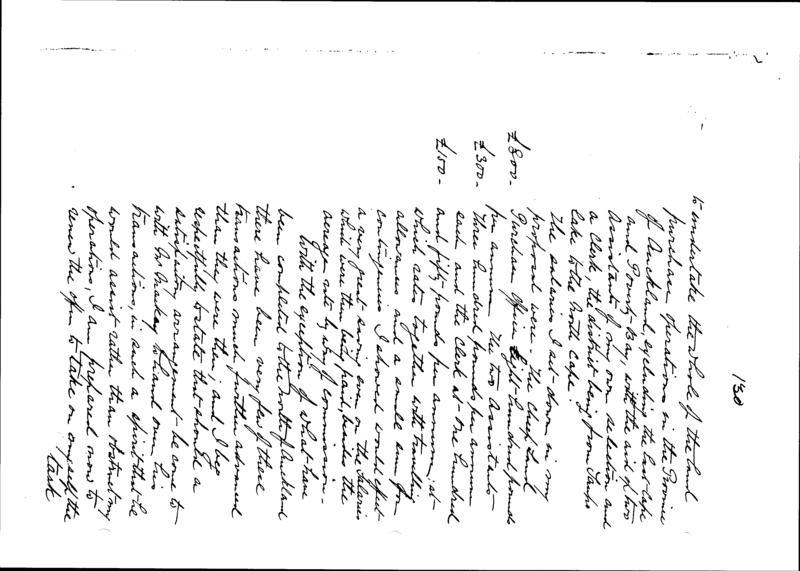 130
2
to undertake the whole of the land
purchase operations in the Province
of Auckland, excluding the East Cape
and Poverty Bay, with the aid of two
Assistants of my own selection and
a Clerk, the district being from Taupo
Lake to the North Cape.
The salaries I set down in my
proposal were - The Chief Land
£800 - Purchase Officer Eight hundred pounds
per annum. The two Assistants
£300 - Three hundred pounds per annum
each and the Clerk at One hundred
£150 - and fifty pounds per annum, at
which rates together with travelling
allowances and a small sum for
contingencies I showed would effect
a very great saving even on the salaries
which were then being paid, besides the
acreage rate by way of commission -
With the exception of what have
been completed to the north of Auckland
there have been very few of these
transactions much further advanced
than they were then; and I beg
respectfully to state that should a
satisfactory arrangement be come to
with Mr Mackay to hand over his
transactions, in such a spirit that he
would assist rather than obstruct my
operations, I am prepared now to
renew the offer to take on myself the
task